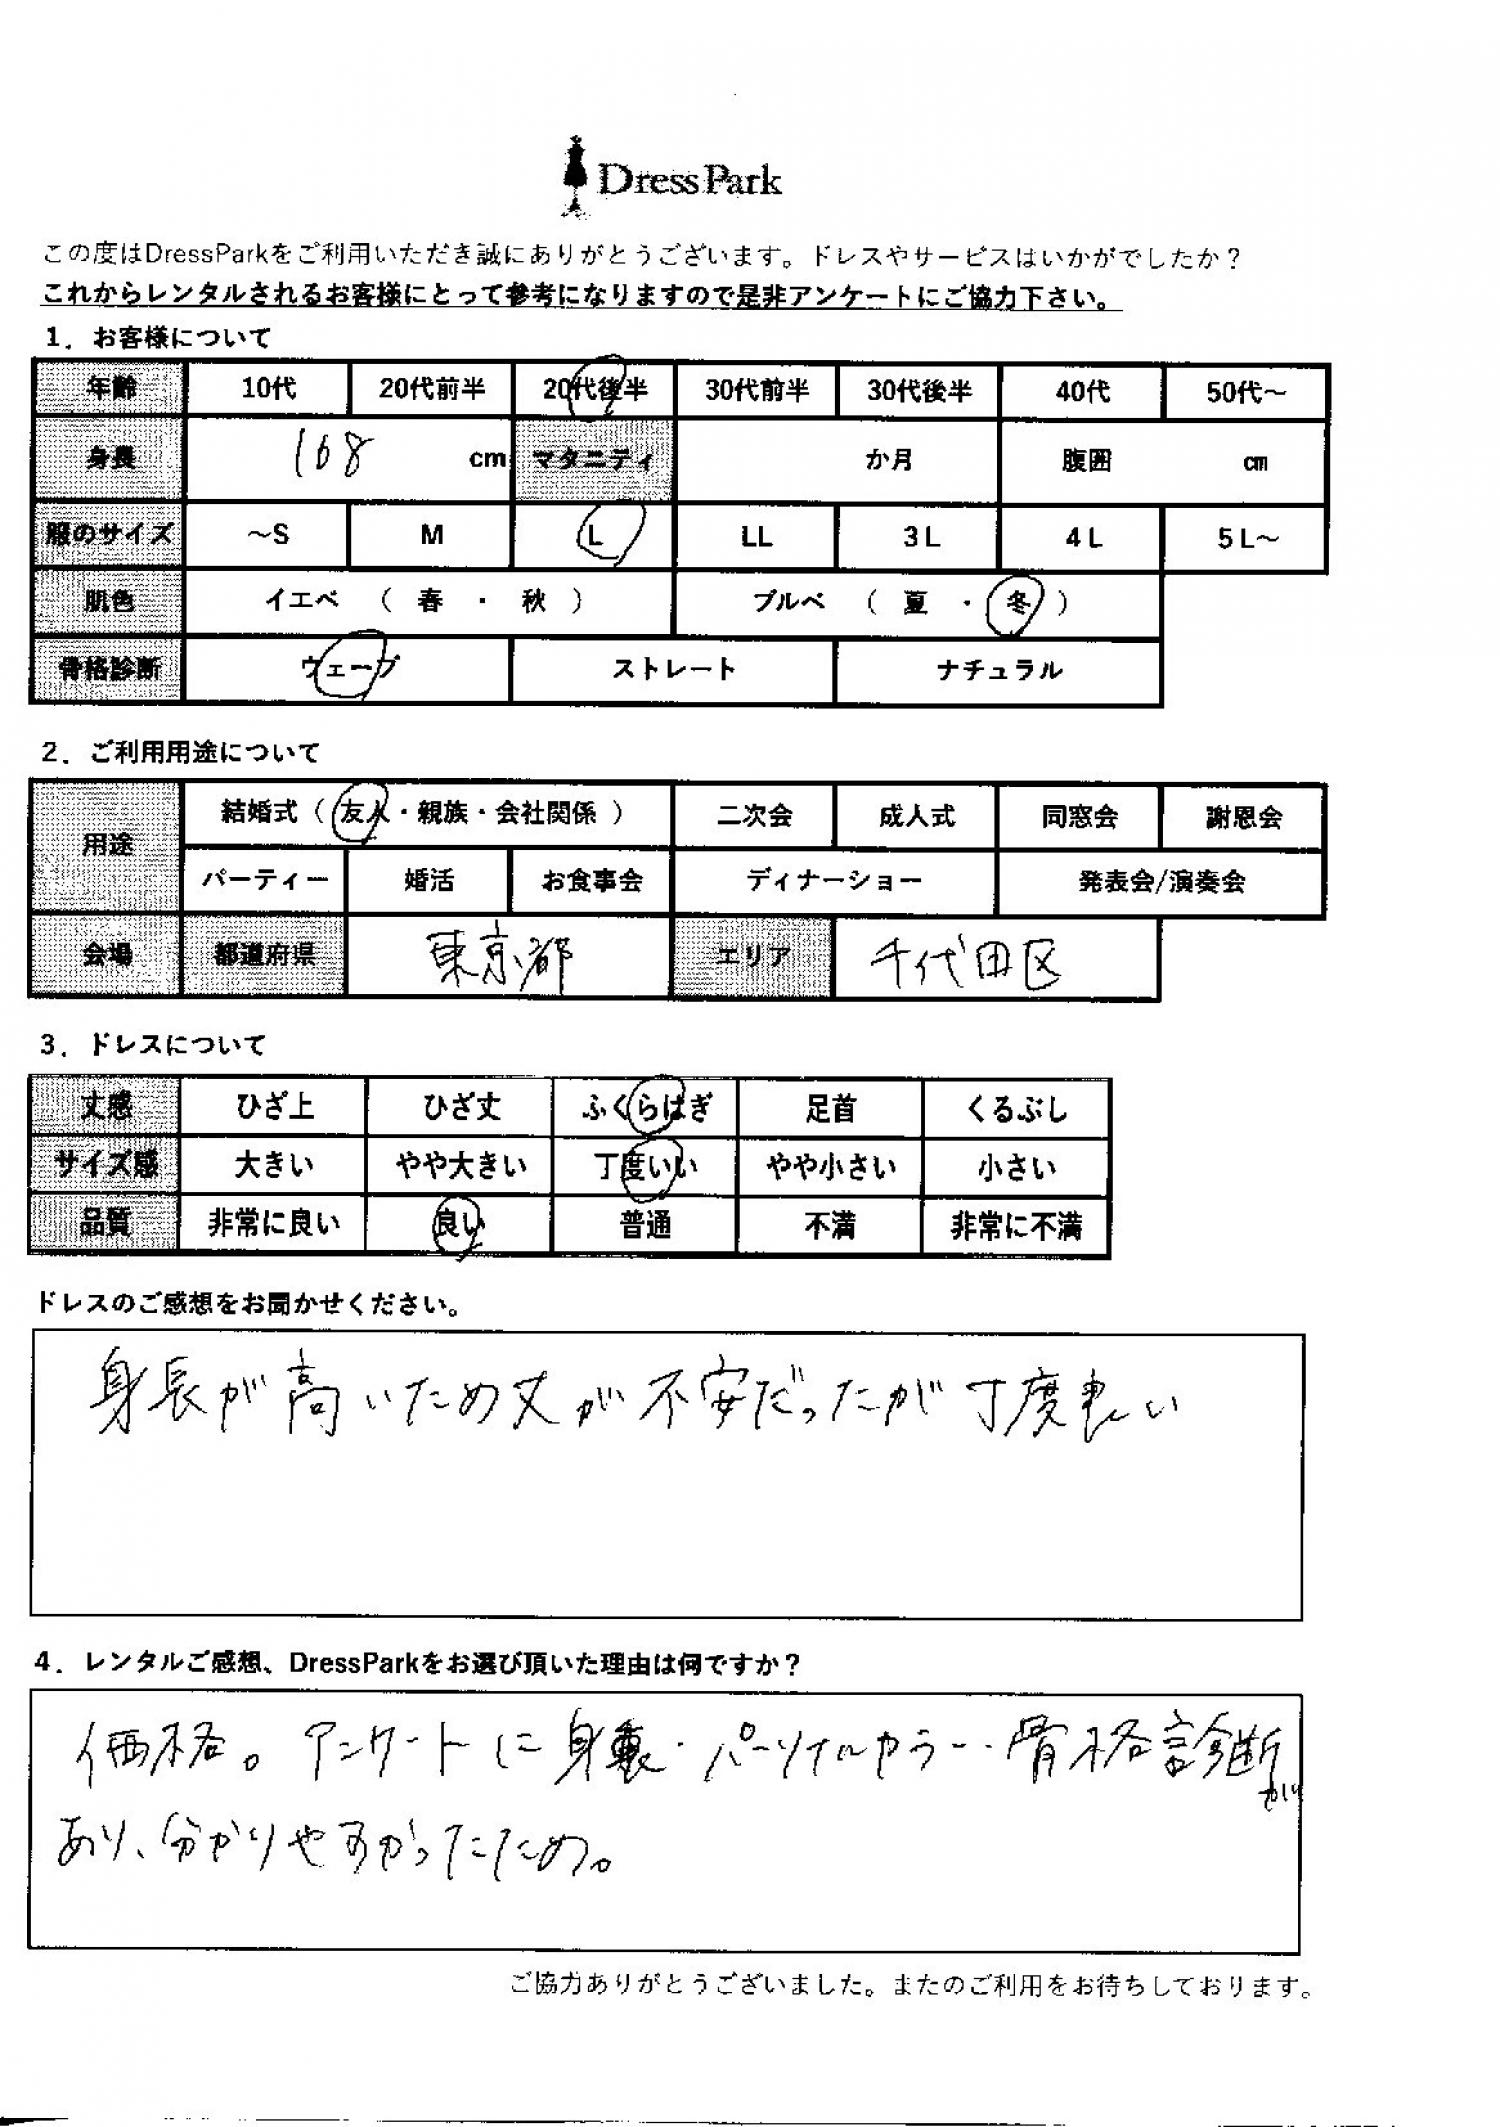 DressPark
この度はDressParkをご利用いただき誠にありがとうございます。ドレスやサービスはいかがでしたか？
これからレンタルされるお客様にとって参考になりますので是非アンケートにご協力下さい。
1．お客様について
年齢 10代 20代前半 20代後半 30代前半 30代後半 40代 50代～
身長 168 cm マタニティ か月 腹囲 cm
服のサイズ ～S M L LL 3L 4L 5L～
肌色 イエベ （ 春 ・ 秋 ） ブルベ （ 夏 ・ 冬 ）
骨格診断 ウェーブ ストレート ナチュラル
2．ご利用用途について
用途 結婚式（ 友人・親族・会社関係 ） 二次会 成人式 同窓会 謝恩会
パーティー 婚活 お食事会 ディナーショー 発表会/演奏会
会場 都道府県 東京都 エリア 千代田区
3．ドレスについて
丈感 ひざ上 ひざ丈 ふくらはぎ 足首 くるぶし
サイズ感 大きい やや大きい 丁度いい やや小さい 小さい
品質 非常に良い 良い 普通 不満 非常に不満
ドレスのご感想をお聞かせください。
身長が高いため丈が不安だったが丁度良い
4．レンタルご感想、DressParkをお選び頂いた理由は何ですか？
価格。アンケートに身長・パーソナルカラー・骨格診断が
あり、分かりやすかったため。
ご協力ありがとうございました。またのご利用をお待ちしております。